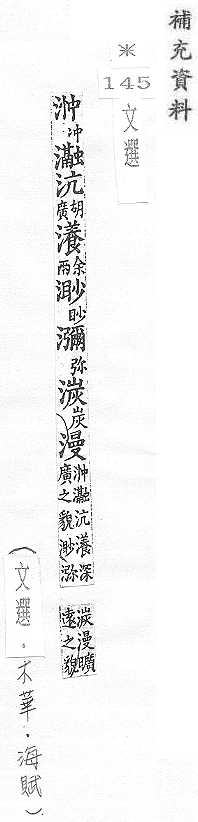 補充資料
※
145
文選
浺冲瀜沆胡廣瀁余兩渺眇瀰弥湠炭漫浺瀜沆瀁深廣之貌渺㳽湠漫曠遠之貌
(文選・木華・海賦)